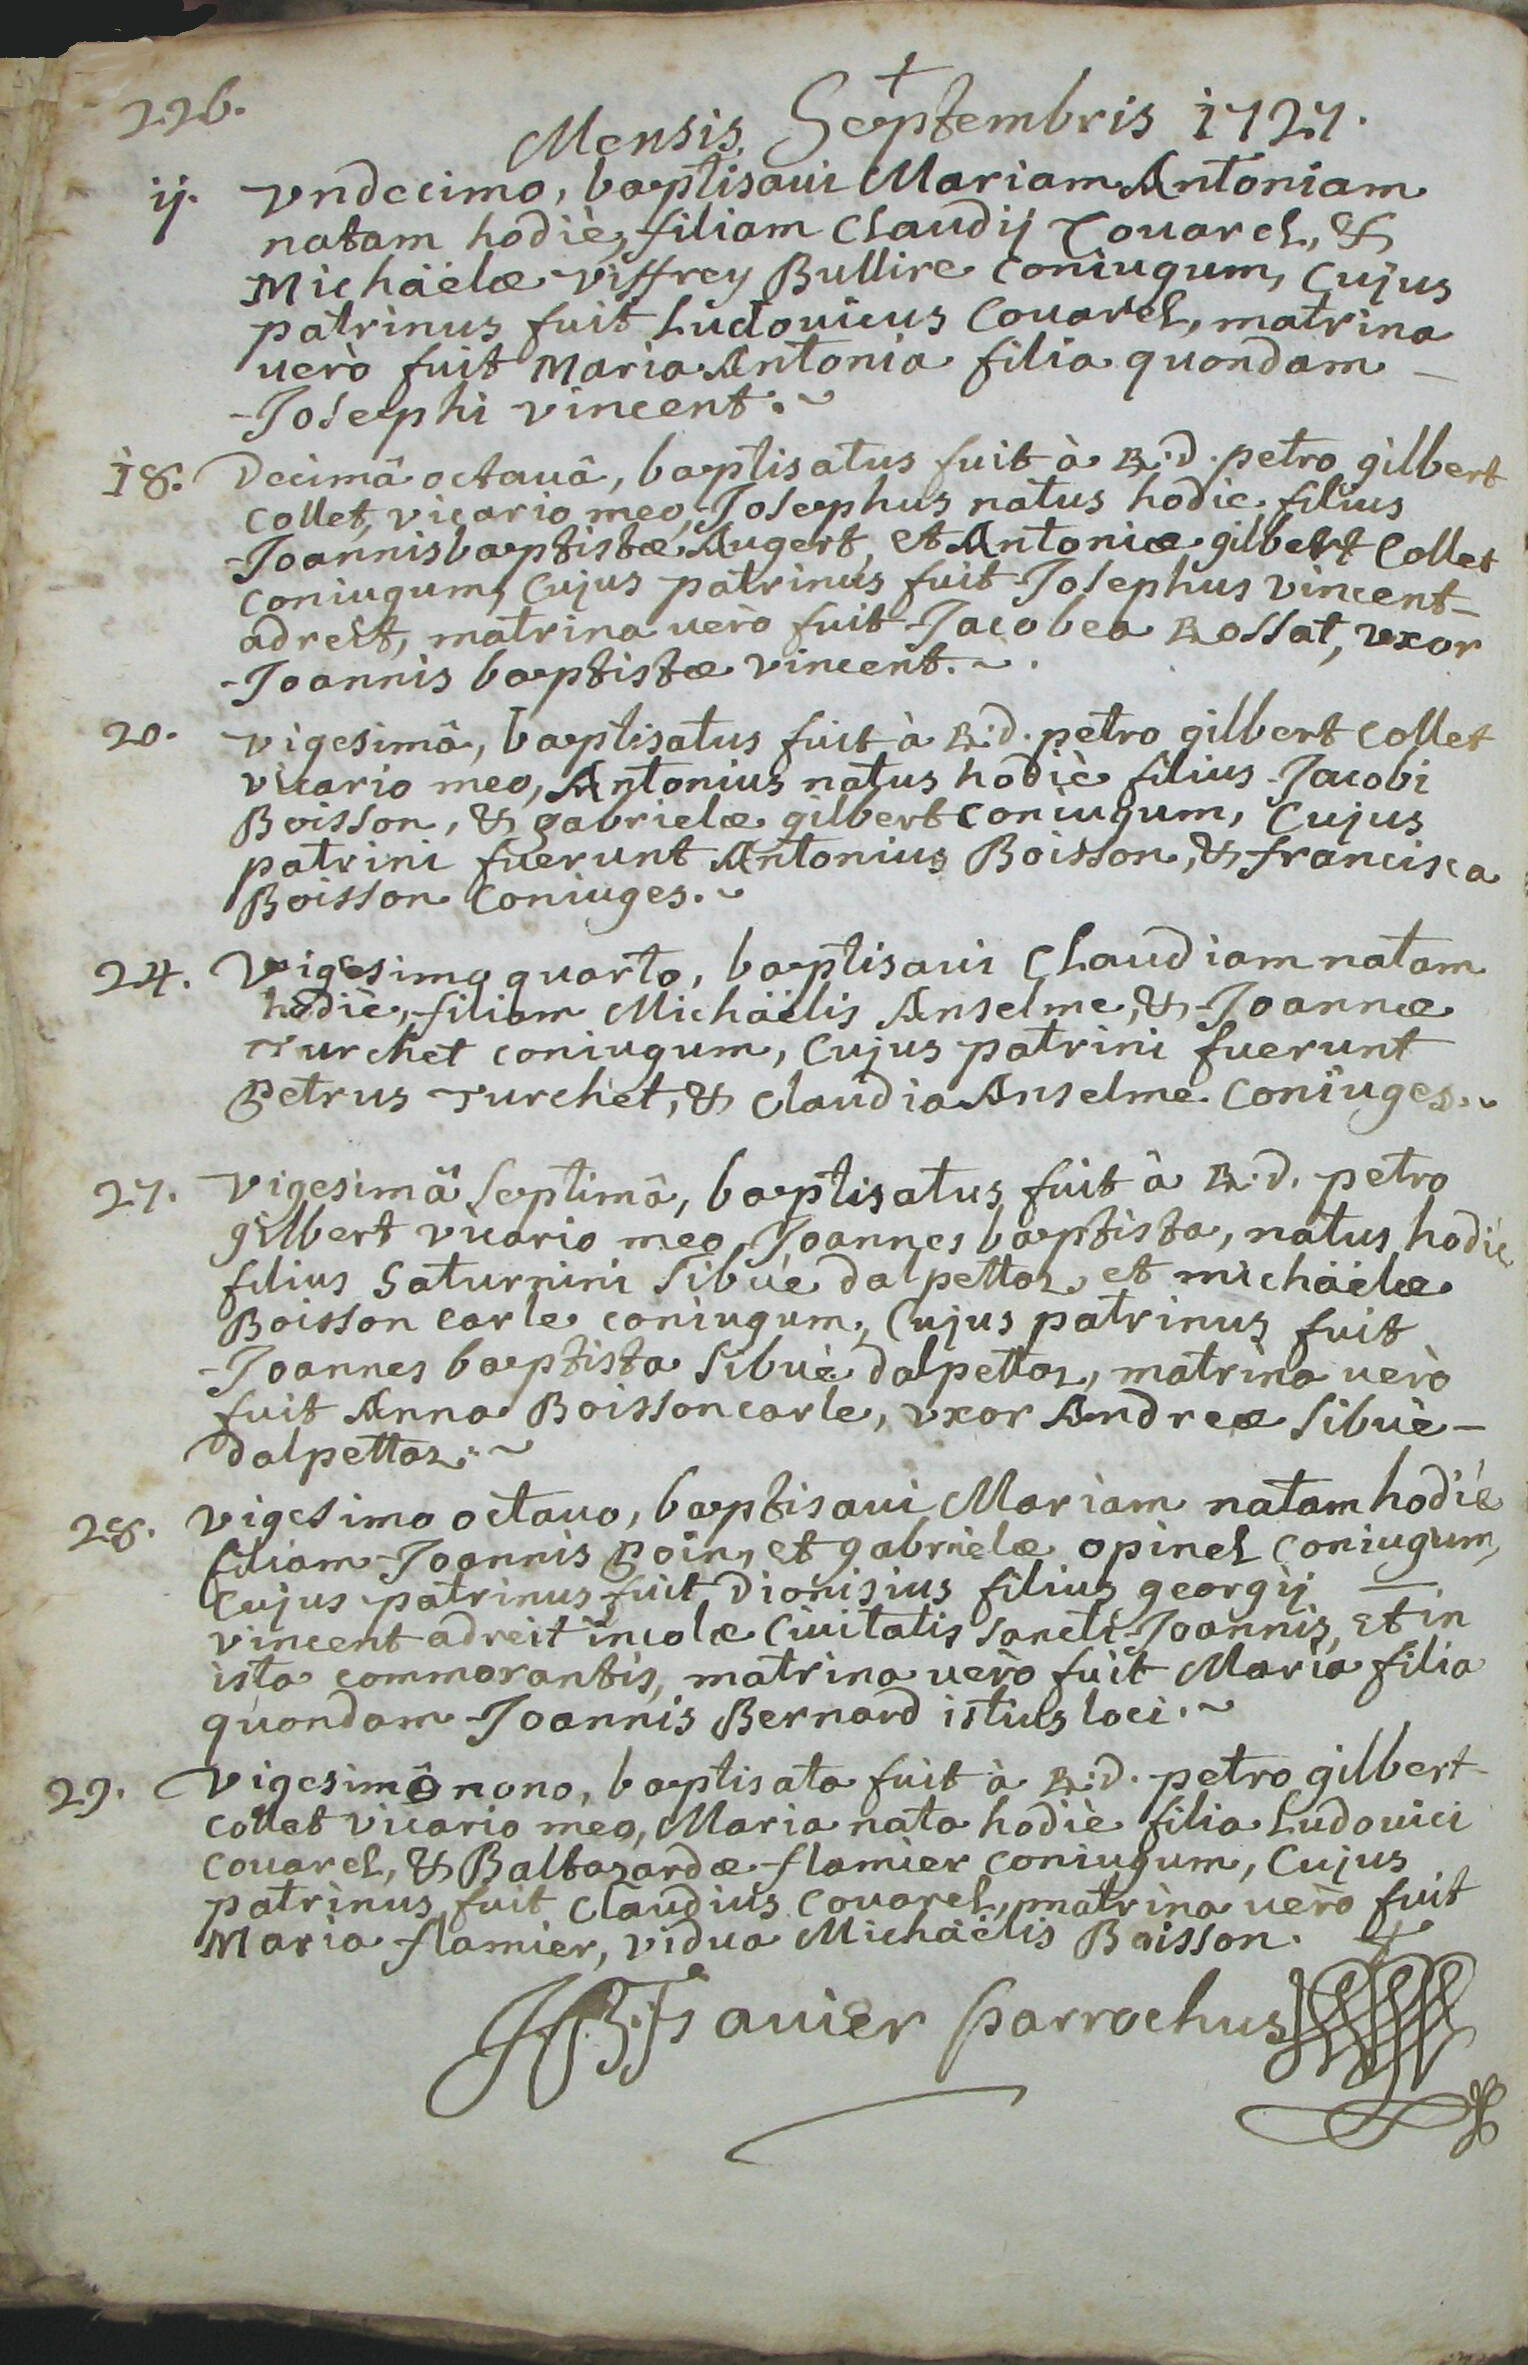 226.
Mensis Septembris 1727.
ij. Vndecimo, baptisaui Mariam Antoniam
natam hodiè, filiam Claudij Couarel, &
Michäelæ Viffrey Bullire coniugum, Cujus
patrinus fuit Ludouicus Couarel, matrina
uerò fuit Maria Antonia filia quondam —
Josephi vincent. ~
18. Decimâ octauâ, baptisatus fuit à R.d. petro gilbert
Collet, vicario meo, Josephus natus hodie filius
Joannisbaptistæ Augert, et Antoniæ gilbert Collet
coniugum, Cujus patrinus fuit Josephus vincent –
adreit, matrina uerò fuit Jacobea Rossat, vxor
Joannis baptistæ vincent. ~.
20. vigesimâ, baptisatus fuit à R.d. petro gilbert collet
vicario meo, Antonius natus hodiè filius Jacobi
Boisson, & gabrielæ gilbert coniugum, Cujus
patrini fuerunt Antonius Boisson, & francisca
Boisson Coniuges. ~
24. Vigesimo quarto, baptisaui Claudiam natam
hodiè, filiam Michäelis Anselme, & Joannæ
Turchet coniugum, Cujus patrini fuerunt
Petrus Turchet, & Claudia Anselme Coniuges. ~
27. Vigesimâ septimâ, baptisatus fuit à R.d. petro
gilbert vicario meo, Joannes baptista, natus hodiè
filius Saturnini Sibuè dalpettaz, et michäelæ
Boisson carle coniugum, Cujus patrinus fuit
Joannes baptista Sibuè dalpettaz, matrina uerò
fuit Anna Boisson carle, vxor Andreæ Sibuè –
dalpettaz. ~
28. vigesimo octauo, baptisaui Mariam natam hodiè
filiam Joannis Poin, et gabrielæ opinel Coniugum,
Cujus patrinus fuit Dionisius filius georgij —
vincent adreit incolæ Ciuitatis sancti Joannis, et in
ista commorantis, matrina uerò fuit Maria filia
quondam Joannis Bernard istius loci. ~
29. Vigesimo nono, baptisata fuit à R.d. petro gilbert
collet vicario meo, Maria nata hodiè filia Ludouici
couarel, & Baltazardæ flamier coniugum, Cujus
patrinus fuit Claudius Couarel, matrina uerò fuit
Maria flamier, vidua Michäelis Boisson.
parrochus